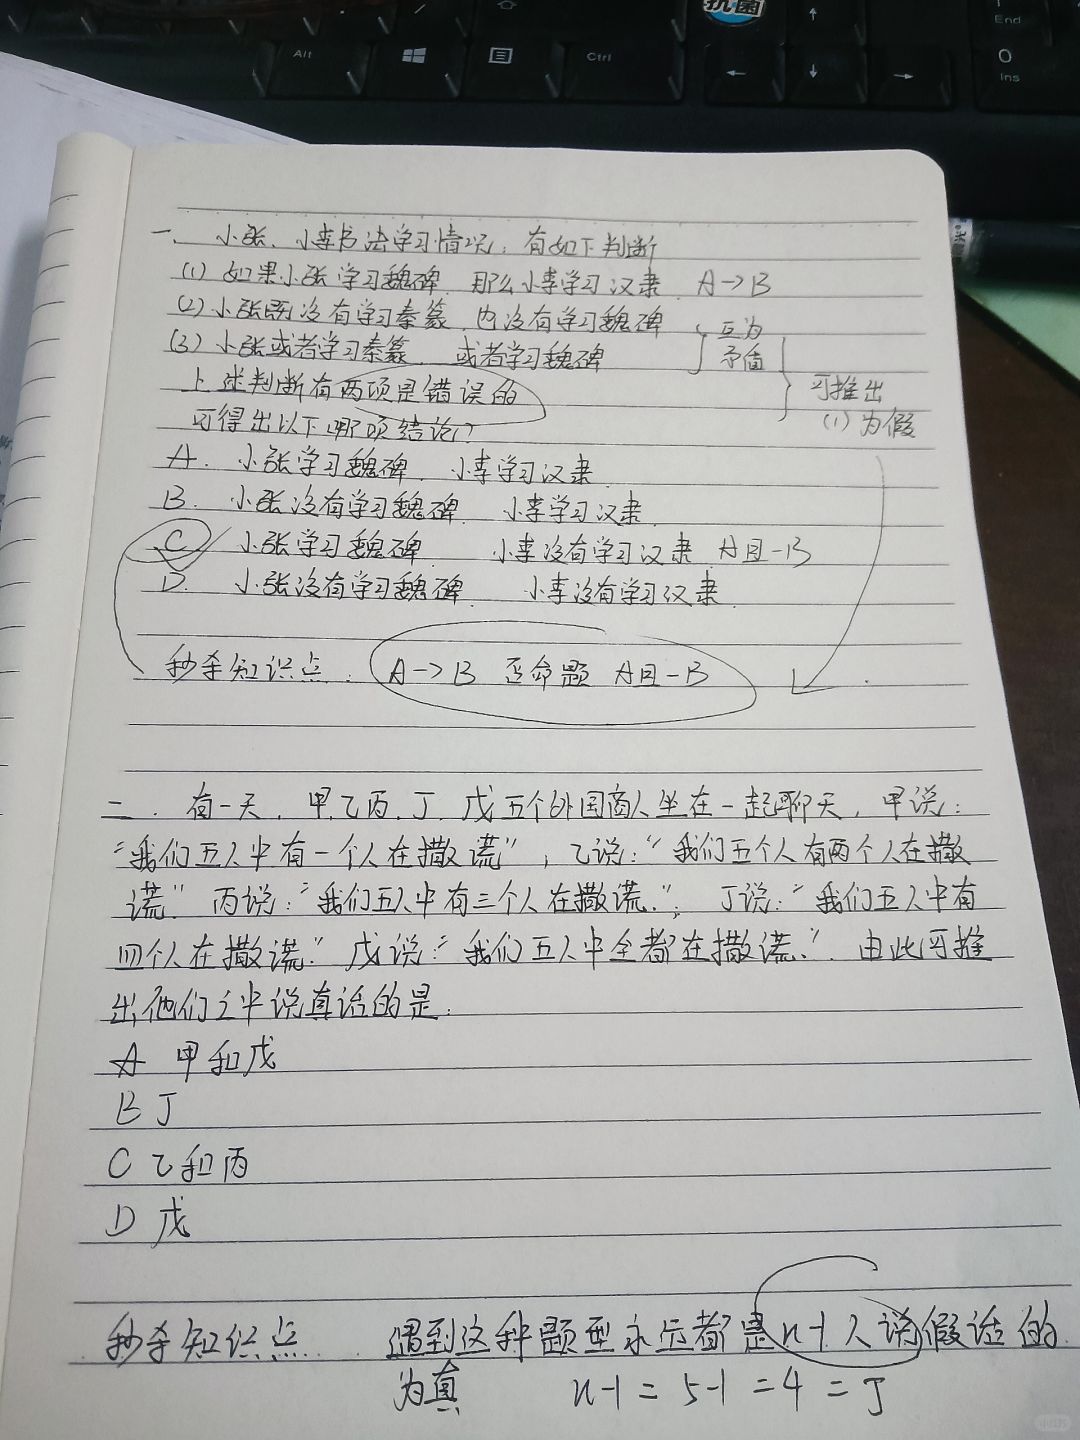 抗菌
End
Alt
Ctrl
0
Ins
一、小张、小李书法学习情况，有如下判断
(1) 如果小张学习魏碑，那么小李学习汉隶 A→B
(2) 小张既没有学习秦篆，也没有学习魏碑
(3) 小张或者学习秦篆，或者学习魏碑
互为
矛盾
可推出
(1)为假
上述判断有两项是错误的
可得出以下哪项结论？
A. 小张学习魏碑 小李学习汉隶
B. 小张没有学习魏碑 小李学习汉隶
C 小张学习魏碑 小李没有学习汉隶 A且-B
D. 小张没有学习魏碑 小李没有学习汉隶
秒杀知识点： A→B 否命题 A且-B
二、有一天，甲、乙、丙、丁、戊五个外国商人坐在一起聊天，甲说：
“我们五人中有一个人在撒谎”，乙说：“我们五个人有两个人在撒
谎” 丙说：“我们五人中有三个人在撒谎.”；丁说：“我们五人中有
四个人在撒谎.” 戊说：“我们五人中全都在撒谎.”. 由此可推
出他们之中说真话的是：
A 甲和戊
B 丁
C 乙和丙
D 戊
秒杀知识点 遇到这种题型永远都是n-1人说假话的
为真 n-1=5-1=4=丁
小红书